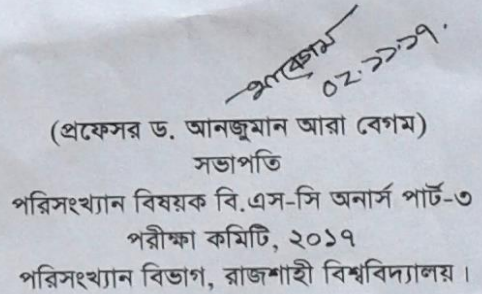 ০২.১১.১৭.
(প্রফেসর ড. আনজুমান আরা বেগম)
সভাপতি
পরিসংখ্যান বিষয়ক বি.এস-সি অনার্স পার্ট-৩
পরীক্ষা কমিটি, ২০১৭
পরিসংখ্যান বিভাগ, রাজশাহী বিশ্ববিদ্যালয়।